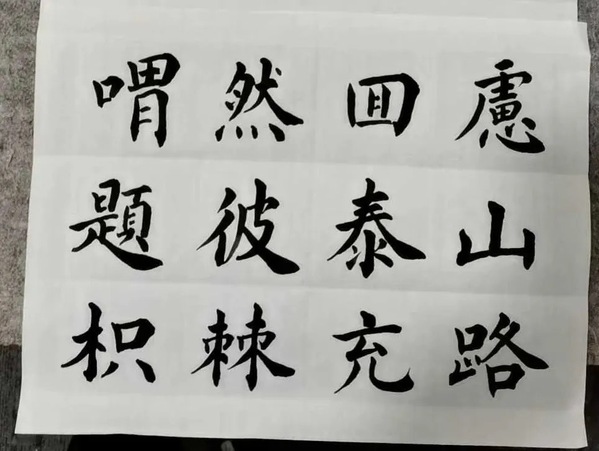 喟然囬慮
題彼泰山
枳棘充路